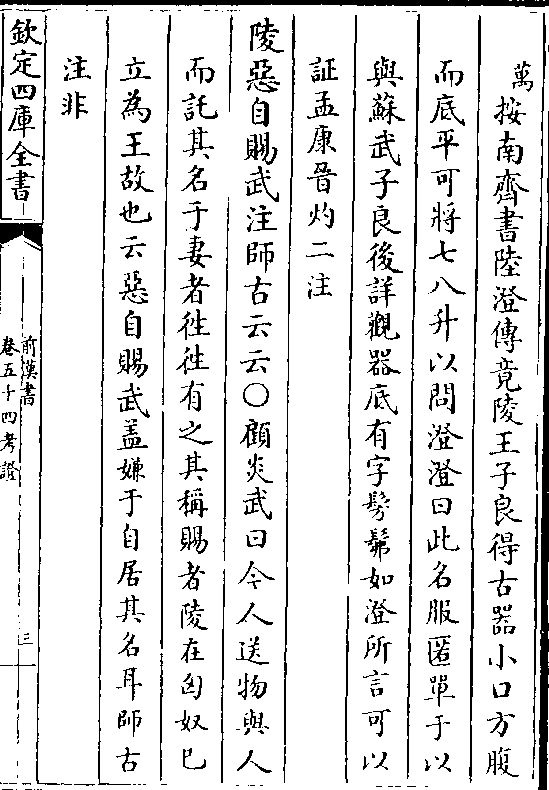 萬按南齊書陸澄傳竟陵王子良得古器小口方腹
而底平可將七八升以問澄澄曰此名服匿單于以
與蘇武子良後詳觀器底有字髣髴如澄所言可以
証孟康晉灼二注
陵惡自賜武注師古云云〇顧炎武曰今人送物與人
而託其名于妻者徃徃有之其稱賜者陵在匈奴已
立為王故也云惡自賜武盖嫌于自居其名耳師古
注非
欽定四庫全書
前漢書
卷五十四考證
三